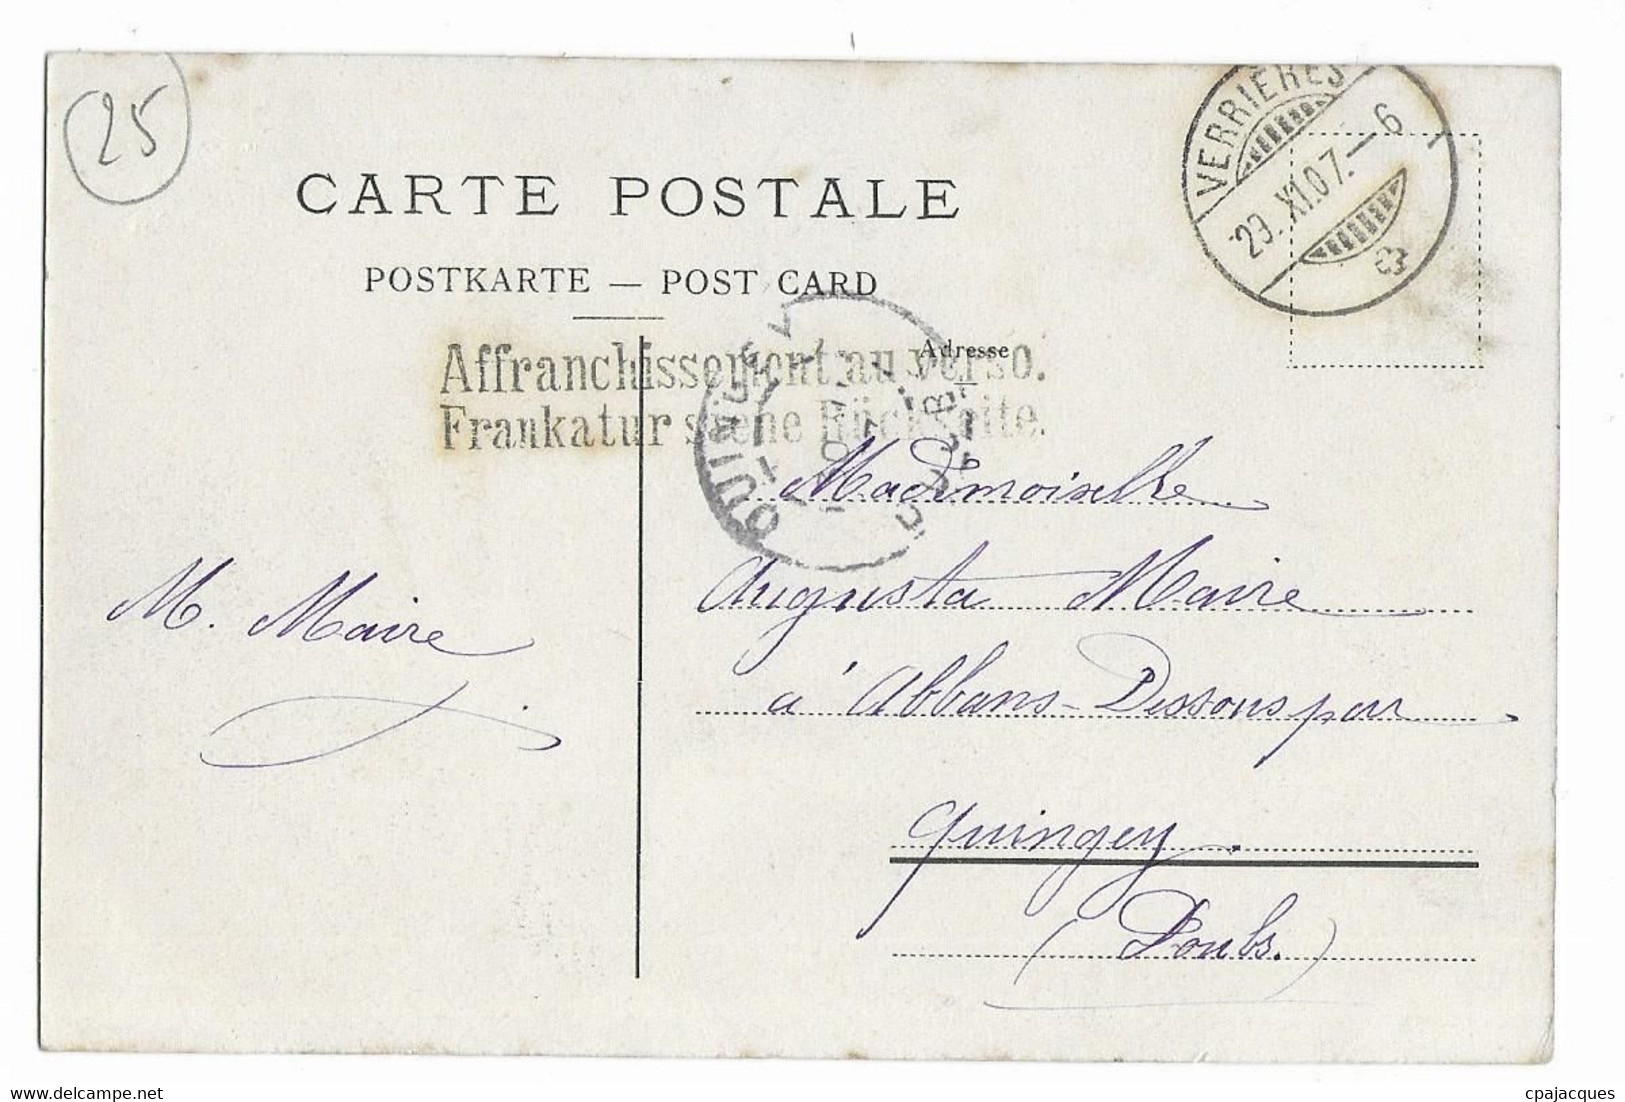 25
VERRIÈRES
29. XI. 07. — 6
CARTE POSTALE
POSTKARTE — POST CARD
Adresse
Affranchissement au verso.
Frankatur siehe Rückseite.
QUINGEY
DOUBS
Mademoiselle
Augusta Maire
à Abbans-Dessous par
Quingey.
(Doubs.)
M. Maire
cpajacques